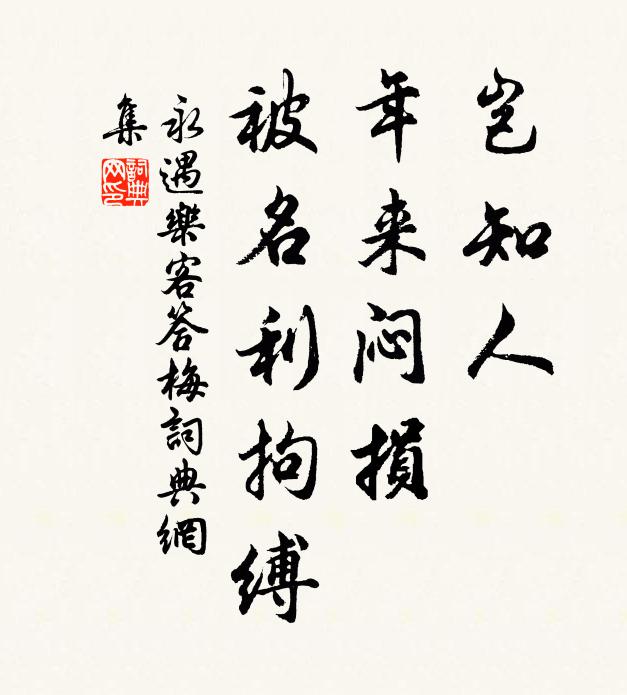 岂知人
年来闷損
被名利拘縛
永遇樂客答梅詞典網
集
詞典
网印